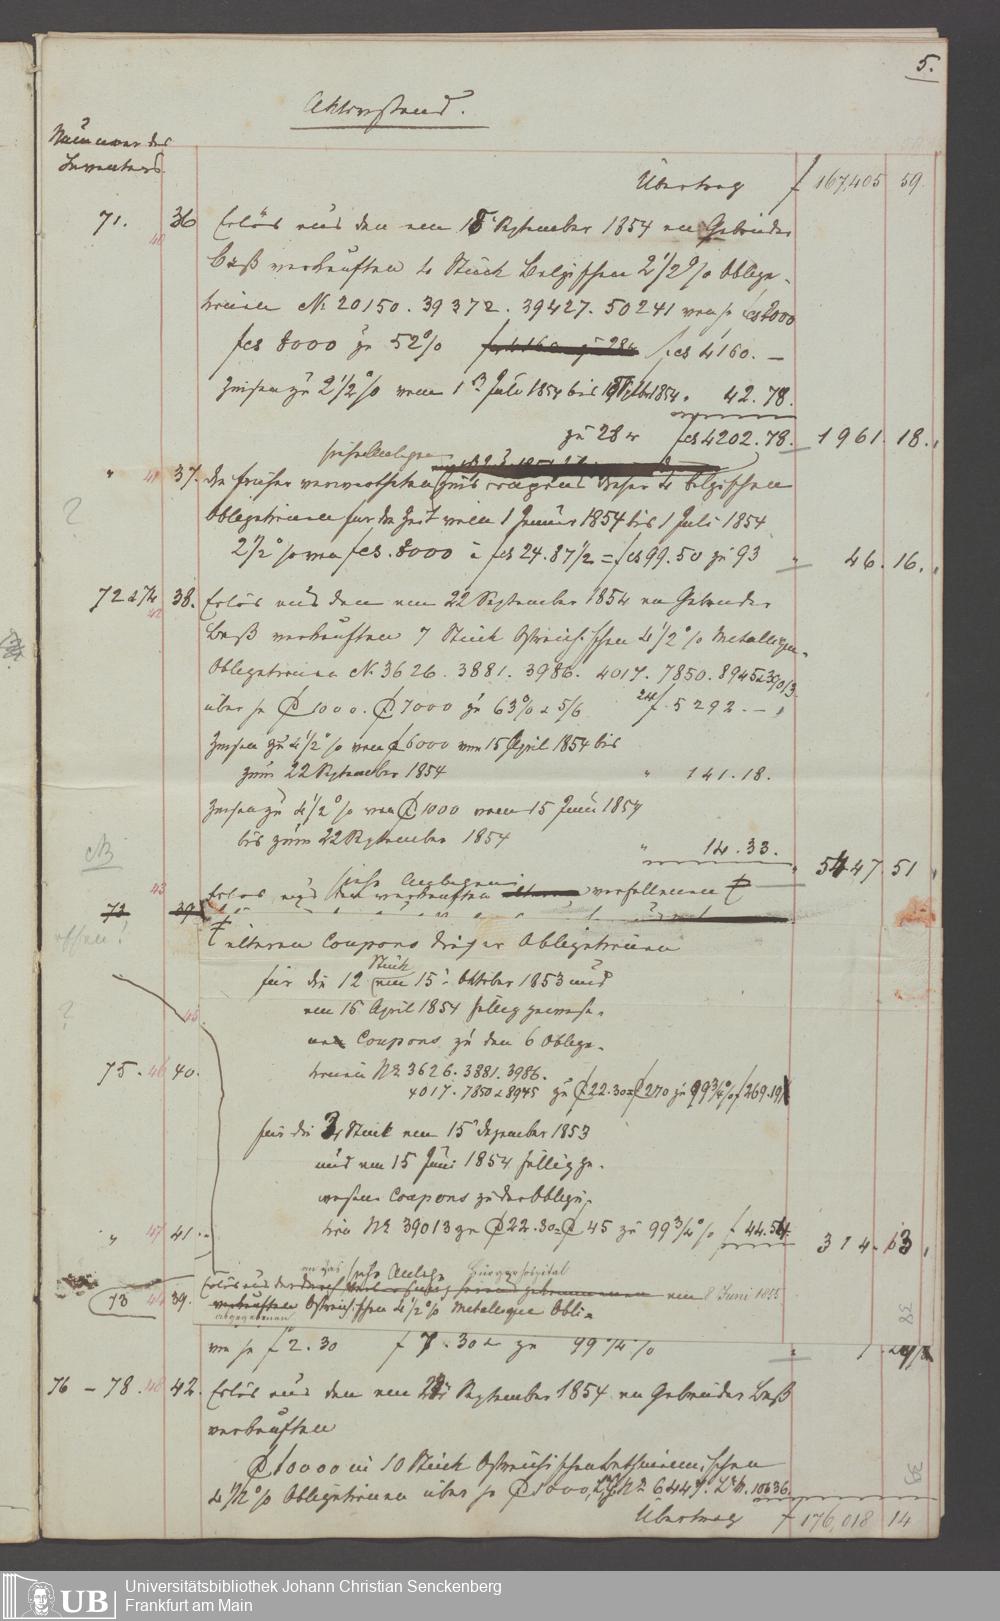 5.
Aktivstand.
Nummer des
Inventars.
Übertrag f 167,405 59.
71. 40 36 Erlös aus den am 15 September 1854 an Gebrüder
Baß verkauften 4 Stück Belgischen 2 1/2 % Obliga-
tionen No 20150. 39372. 39427. 50241 von je fcs 2000
fcs 8000 zu 52% fcs 4160. —
Zinsen zu 2 1/2 % vom 1 n Juli 1854 bis 1854 " 42.78.
zu 28 xr fcs 4202.78. 1961. 18.
siehe Anlagen
" 41 37. Die früher verwertheten Zinscoupons dieser 4 belgischen
Obligationen für die Zeit vom 1 Januar 1854 bis 1 Juli 1854
2 1/2 % von fcs. 8000 à fcs 24.87 1/2 = fcs 99.50 zu 93 " 46. 16.
72 & 74 42 38. Erlös aus den am 22 September 1854 an Gebrüder
Baß verkauften 7 Stück Östreichischen 4 1/2 % Metalliques
Obligationen No. 3626. 3881. 3986. 4017. 7850. 8945 & 39013
über je f 1000. f 7000 zu 63% & 5/6 f. 5292. —
Zinsen zu 4 1/2 % von f 6000 vom 15 April 1854 bis
zum 22 September 1854 " 141.18.
Zinsen zu 4 1/2 % von f 1000 vom 15 Juni 1854
bis zum 22 September 1854 " 14.33. 5447. 51
NB
siehe Anlagen
43 Erlös aus den verkauften verfallenen
73 39
offen!
älteren Coupons dieser Obligationen
für die 12 Stück am 15. Oktober 1853 und
am 15 April 1854 fällig gewese-
nen Coupons zu den 6 Obliga-
45
75. 46 40. tionen No 3626. 3881. 3986.
4017. 7850 & 8945 zu f 22.30 = f 270 zu 99 3/4 % f 269.19
für die 2 Stück am 15 Dezember 1853
und am 15 Juni 1854 fällig ge-
wesenen Coupons zu der Obliga-
" 47 41. tion No 39013 zu f 22.30 = f 45 zu 99 3/4 % f 44.54. 314. 13
an das siehe Anlage Bürgerhospital
73 44 39. Erlös aus der am 8 Juni 1855
abgegebenen Östreichischen 4 1/2 % Metallique Obli-
von je f 2.30 f 7.30 zu 99 1/4 %
76 - 78. 48 42. Erlös aus den am 22 September 1854 an Gebrüder Baß
verkauften
f 10000 in 10 Stück Östreichischen
4 1/2 % Obligationen über je f 1000, No 6449. 10636.
Übertrag f 176,018 14
38
39
UB
Universitätsbibliothek Johann Christian Senckenberg
Frankfurt am Main